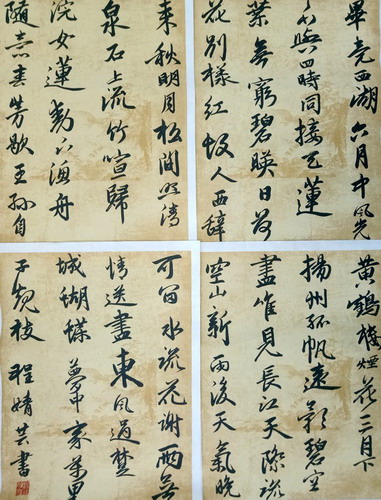 畢竟西湖六月中風光
不與四時同接天蓮
葉無窮碧映日荷
花別樣紅故人西辭
黃鶴樓煙花三月下
揚州孤帆遠影碧空
盡唯見長江天際流
空山新雨後天氣晚
來秋明月松間照清
泉石上流竹喧歸
浣女蓮動下漁舟
隨意春芳歇王孫自
可留水流花謝兩無
情送盡東風過楚
城蝴蝶夢中家萬里
子規枝 程婧書